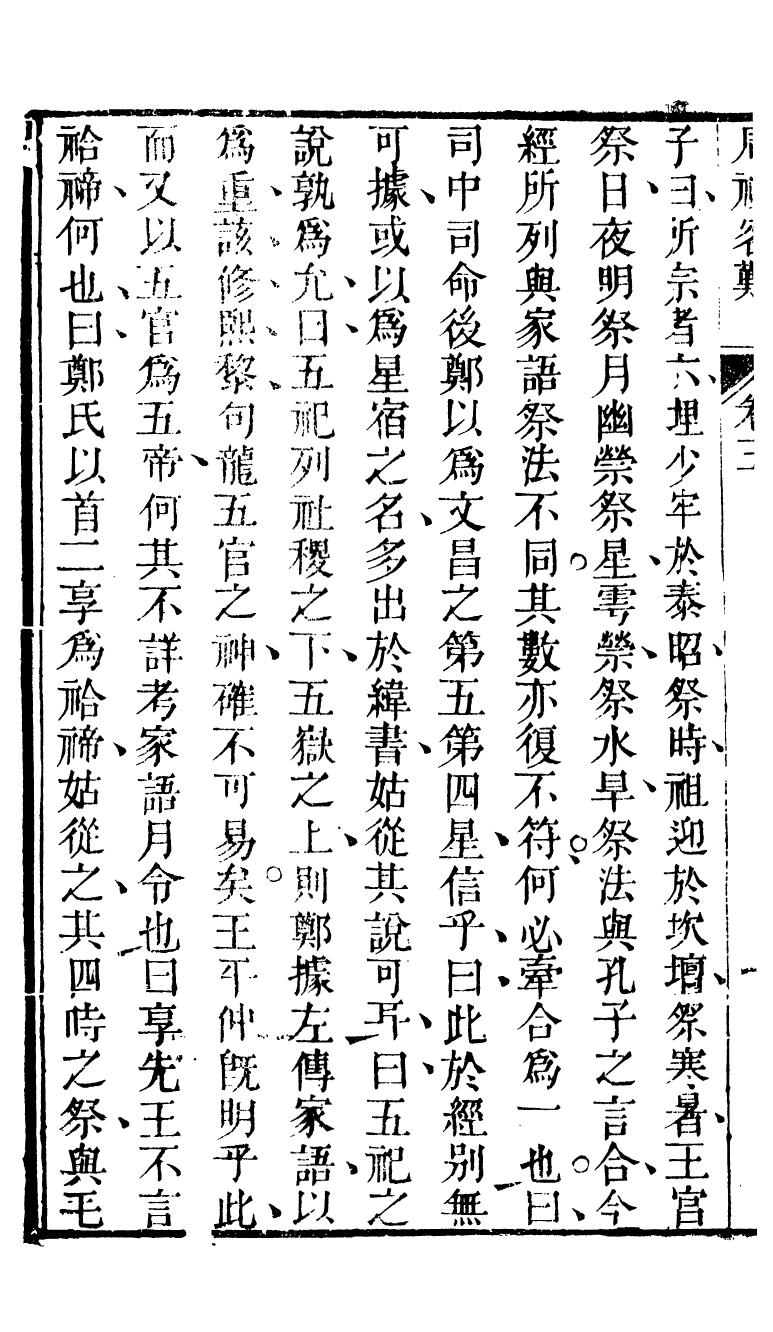 周禮客難 卷三
子曰所宗者六埋少牢於泰昭祭時祖迎於坎壇祭寒暑王宮
祭日夜明祭月幽禜祭星雩禜祭水旱祭法與孔子之言合今
經所列與家語祭法不同其數亦復不符何必牽合爲一也曰
司中司命後鄭以爲文昌之第五第四星信乎曰此於經别無
可據或以爲星宿之名多出於緯書姑從其說可耳曰五祀之
說孰爲允曰五祀列社稷之下五嶽之上則鄭據左傳家語以
爲重該修熙黎句龍五官之神確不可易矣王平仲旣明乎此
而又以五官爲五帝何其不詳考家語月令也曰享先王不言
祫禘何也曰鄭氏以首二享爲祫禘姑從之其四時之祭與毛